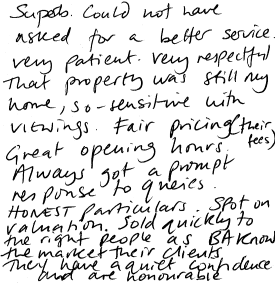 Superb. Could not have
asked for a better service.
very patient. very respectful
That property was still my
home, so-sensitive with
viewings. Fair pricing (their fees)
Great opening hours.
Always got a prompt
response to queries.
HONEST particulars. Spot on
valuation. Sold quickly to
the right people as BA Know
the market their clients
They have a quiet confidence
and are honourable